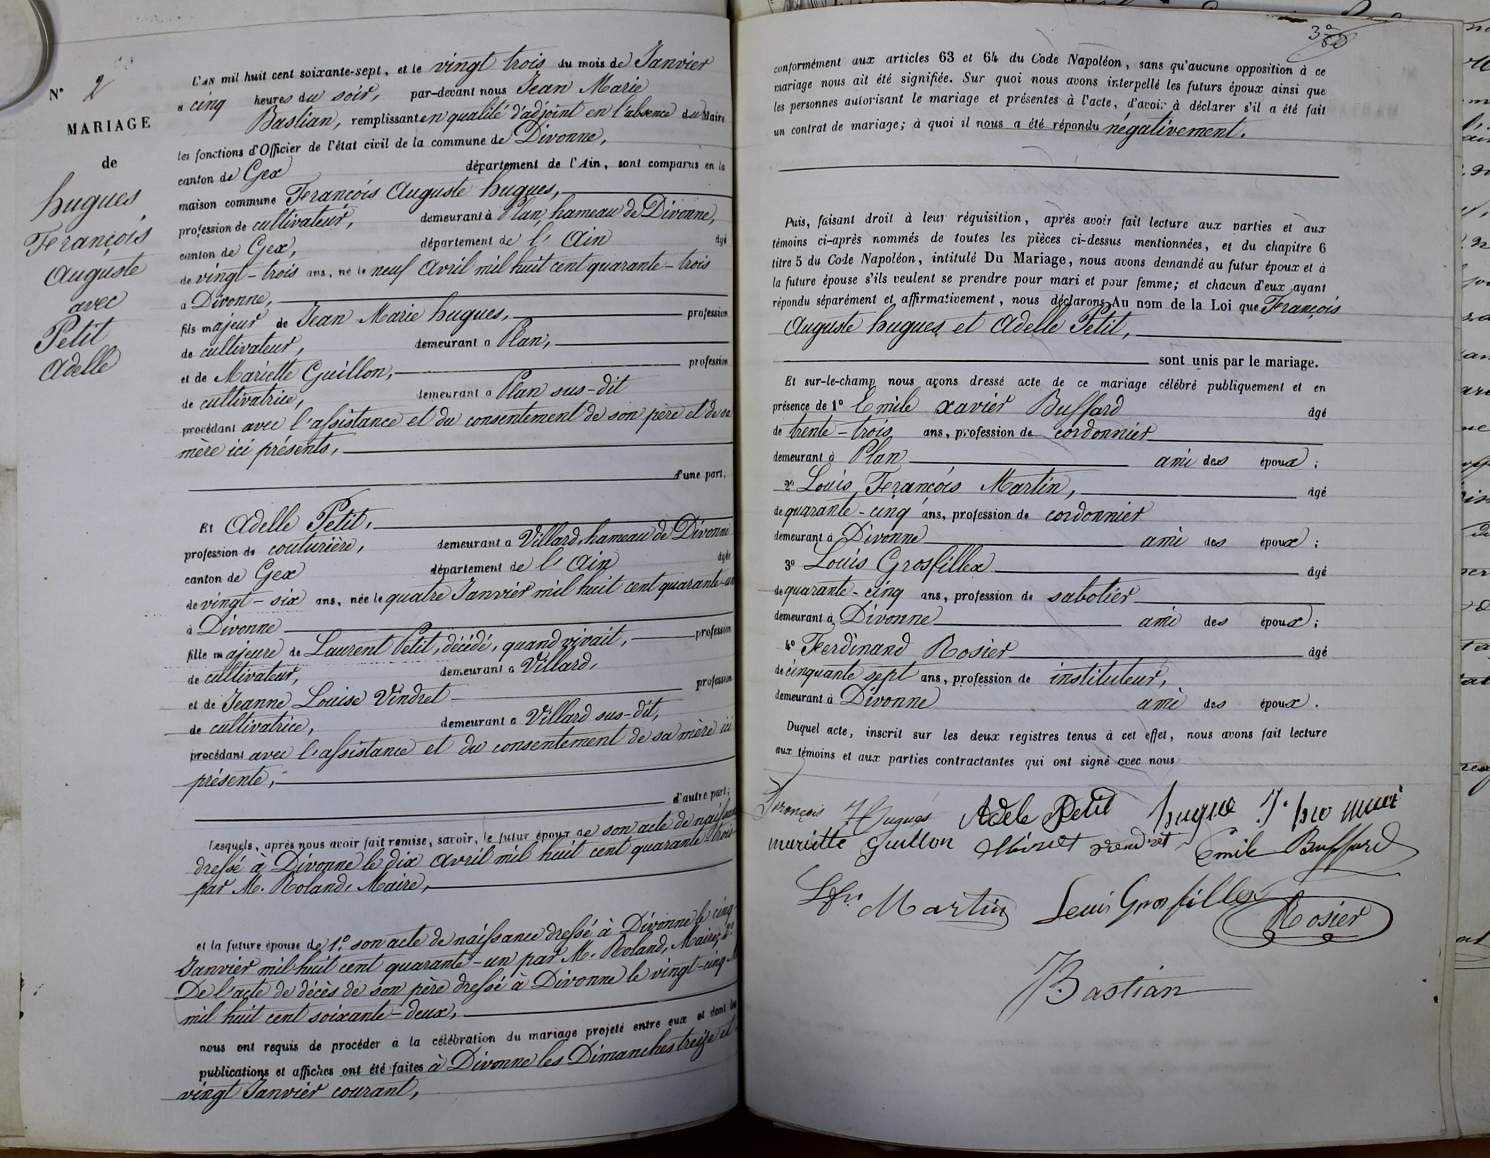 N° 2
MARIAGE
de
hugues
François
Auguste
avec
Petit
Adelle
L'an mil huit cent soixante-sept, et le vingt trois du mois de Janvier
à cinq heures du soir, par-devant nous Jean Marie
Bastian, remplissant en qualité d'adjoint en l'absence du Maire
les fonctions d'Officier de l'état civil de la commune de Divonne,
canton de Gex département de l'Ain, sont comparus en la
maison commune François Auguste hugues,
profession de cultivateur, demeurant à Plan hameau de Divonne,
canton de Gex, département de l'Ain âgé
de vingt-trois ans, né le neuf Avril mil huit cent quarante-trois
à Divonne,
fils majeur de Jean Marie hugues, profession
de cultivateur, demeurant à Plan,
et de Mariette Guillon, profession
de cultivatrice, demeurant à Plan sus-dit
procédant avec l'assistance et du consentement de son père et de sa
mère ici présents,
d'une part;
Et Adelle Petit,
profession de couturière, demeurant à Villard, hameau de Divonne
canton de Gex département de l'Ain âgée
de vingt-six ans, née le quatre Janvier mil huit cent quarante-un
à Divonne
fille majeure de Laurent Petit, décédé, quand vivait, profession
de cultivateur, demeurant à Villard,
et de Jeanne Louise Vindret profession
de cultivatrice, demeurant à Villard sus-dit,
procédant avec l'assistance et du consentement de sa mère ici
présente,
d'autre part;
Lesquels, après nous avoir fait remise, savoir, le futur époux de son acte de naissance
dressé à Divonne le dix Avril mil huit cent quarante trois
par M. Roland, Maire,
et la future épouse de 1° son acte de naissance dressé à Divonne le cinq
Janvier mil huit cent quarante-un par M. Roland, Maire; 2°
De l'acte de décès de son père dressé à Divonne le vingt-cinq
mil huit cent soixante-deux,
nous ont requis de procéder à la célébration du mariage projeté entre eux et dont les
publications et affiches ont été faites à Divonne les Dimanches treize et
vingt Janvier courant,
conformément aux articles 63 et 64 du Code Napoléon, sans qu'aucune opposition à ce
mariage nous ait été signifiée. Sur quoi nous avons interpellé les futurs époux ainsi que
les personnes autorisant le mariage et présentes à l'acte, d'avoir à déclarer s'il a été fait
un contrat de mariage; à quoi il nous a été répondu négativement.
Puis, faisant droit à leur réquisition, après avoir fait lecture aux parties et aux
témoins ci-après nommés de toutes les pièces ci-dessus mentionnées, et du chapitre 6
titre 5 du Code Napoléon, intitulé Du Mariage, nous avons demandé au futur époux et à
la future épouse s'ils veulent se prendre pour mari et pour femme; et chacun d'eux ayant
répondu séparément et affirmativement, nous déclarons Au nom de la Loi que François
Auguste hugues et Adelle Petit,
sont unis par le mariage.
Et sur-le-champ nous avons dressé acte de ce mariage célébré publiquement et en
présence de 1° Emile xavier Buffard âgé
de trente-trois ans, profession de cordonnier
demeurant à Plan ami des époux;
2° Louis François Martin, âgé
de quarante-cinq ans, profession de cordonnier
demeurant à Divonne ami des époux;
3° Louis Grosfillex âgé
de quarante-cinq ans, profession de sabotier
demeurant à Divonne ami des époux;
4° Ferdinand Rosier âgé
de cinquante sept ans, profession de instituteur,
demeurant à Divonne ami des époux.
Duquel acte, inscrit sur les deux registres tenus à cet effet, nous avons fait lecture
aux témoins et aux parties contractantes qui ont signé avec nous
François Hugues Adèle Petit hugue
mariette Guillon Emile Buffard
Martin Louis Grosfillex Rosier
Bastian